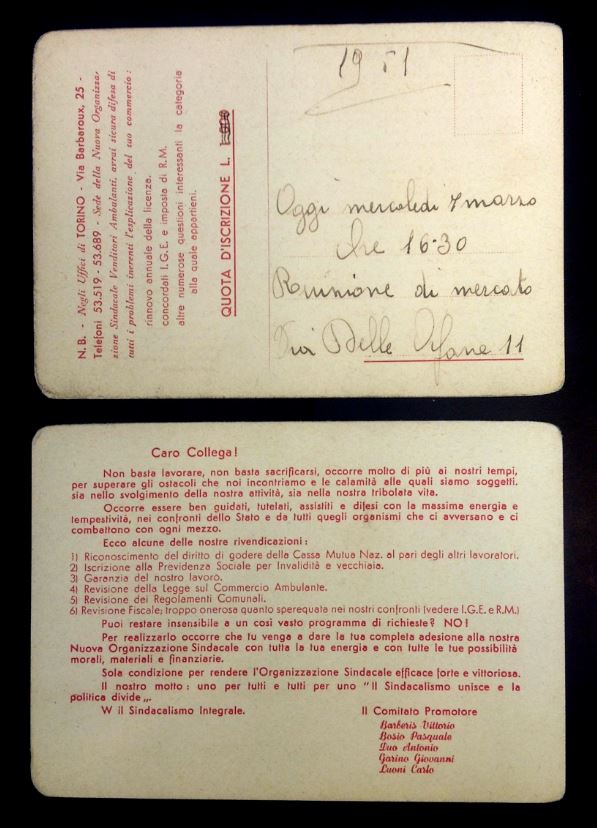 N.B. - Negli Uffici di TORINO - Via Barbaroux, 25 -
Telefoni 53.519 - 53.689 - Sede della Nuova Organizza-
zione Sindacale Venditori Ambulanti, avrai sicura difesa di
tutti i problemi inerenti l'esplicazione del tuo commercio:
rinnovo annuale della licenza.
concordati I.G.E. e imposta di R.M.
altre numerose questioni interessanti la categoria
alla quale appartieni.
QUOTA D'ISCRIZIONE L.
19 51
Oggi mercoledì 7 marzo
Ore 16·30
Riunione di mercato
Via Delle Orfane 11
Caro Collega!
Non basta lavorare, non basta sacrificarsi, occorre molto di più ai nostri tempi,
per superare gli ostacoli che noi incontriamo e le calamità alle quali siamo soggetti.
sia nello svolgimento della nostra attività, sia nella nostra tribolata vita.
Occorre essere ben guidati, tutelati, assistiti e difesi con la massima energia e
tempestività, nei confronti dello Stato e da tutti quegli organismi che ci avversano e ci
combattono con ogni mezzo.
Ecco alcune delle nostre rivendicazioni:
1) Riconoscimento del diritto di godere della Cassa Mutua Naz. al pari degli altri lavoratori.
2) Iscrizione alla Previdenza Sociale per Invalidità e vecchiaia.
3) Garanzia del nostro lavoro.
4) Revisione della Legge sul Commercio Ambulante.
5) Revisione dei Regolamenti Comunali.
6) Revisione Fiscale; troppo onerosa quanto sperequata nei nostri confronti (vedere I.G.E. e R.M.)
Puoi restare insensibile a un così vasto programma di richieste? NO!
Per realizzarlo occorre che tu venga a dare la tua completa adesione alla nostra
Nuova Organizzazione Sindacale con tutta la tua energia e con tutte le tue possibilità
morali, materiali e finanziarie.
Sola condizione per rendere l'Organizzazione Sindacale efficace forte e vittoriosa.
Il nostro motto: uno per tutti e tutti per uno "Il Sindacalismo unisce e la
politica divide„.
W il Sindacalismo Integrale.
Il Comitato Promotore
Barberis Vittorio
Bosio Pasquale
Duo Antonio
Garino Giovanni
Luoni Carlo